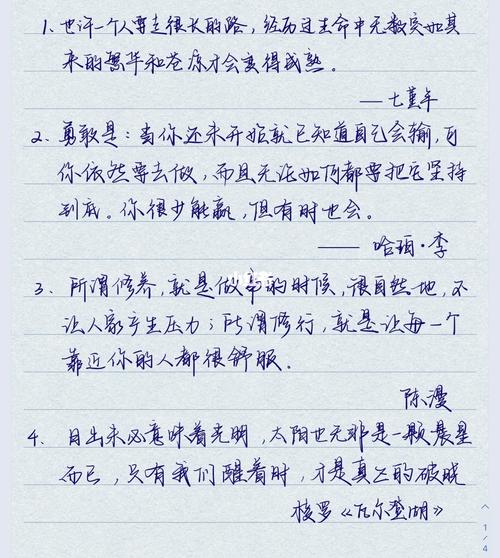 1、也许一个人要走很长的路，经历过生命中无数突如其
来的繁华和苍凉才会变得成熟。
——七堇年
2、勇敢是：当你还未开始就已知道自己会输，可
你依然要去做，而且无论如何都要把它坚持
到底。你很少能赢，但有时也会。
—— 哈珀·李
3、所谓修养，就是做事的时候，很自然地，不
让人家产生压力；所谓修行，就是让每一个
靠近你的人都很舒服。
陈漫
4、日出未必意味着光明，太阳也无非是一颗晨星
而已，只有我们醒着时，才是真正的破晓
梭罗《瓦尔登湖》
1/4